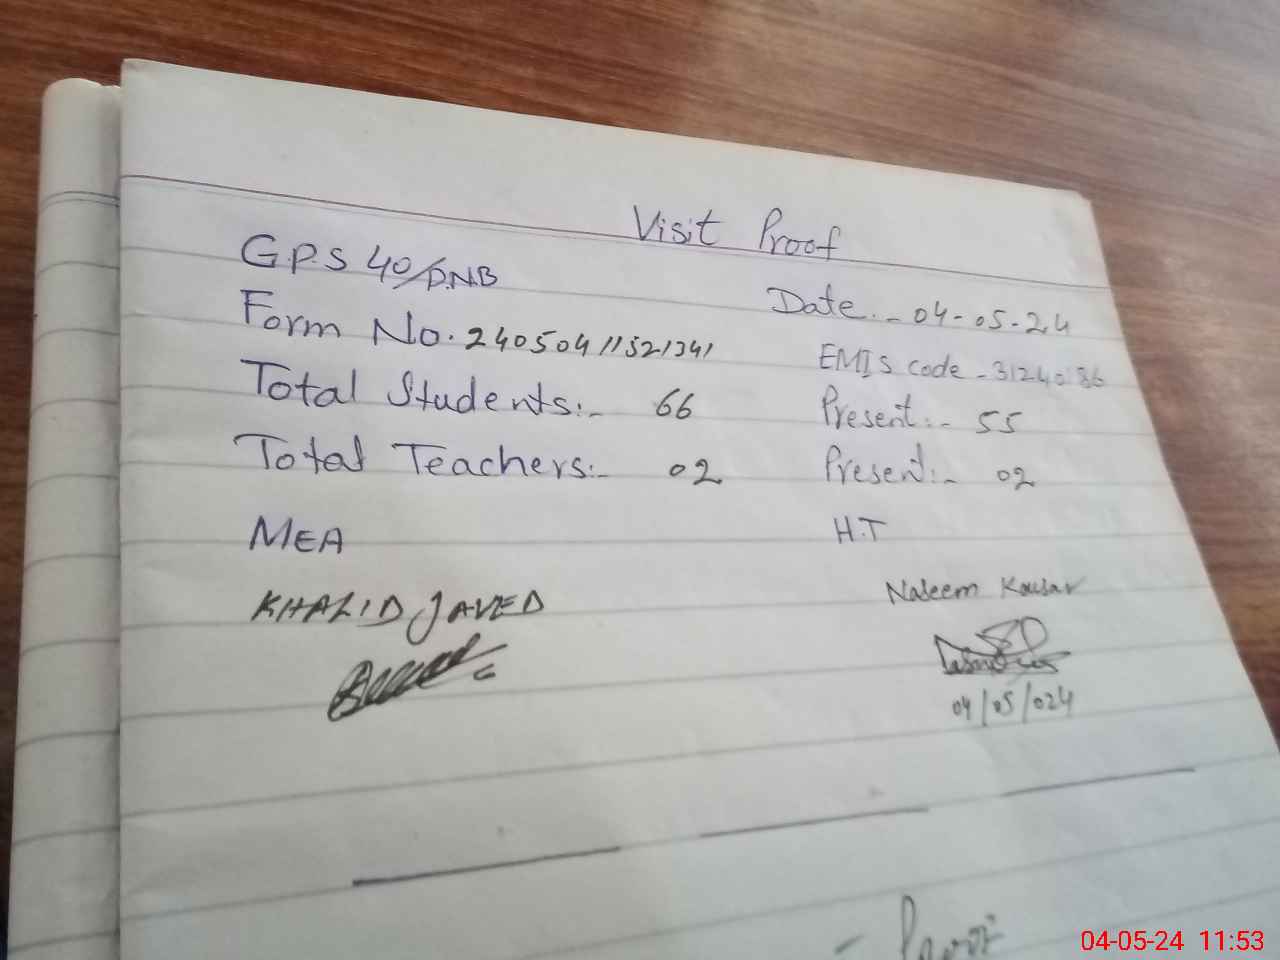 Visit Proof
G.P.S 40/D.NB
Date:- 04-05-24
Form No. 24050411521341
EMIS code - 31240186
Total Students:- 66
Present:- 55
Total Teachers:- 02
Present:- 02
MEA
H.T
KHALID JAVED
Naseem Kousar
04/05/024
Proof
04-05-24 11:53